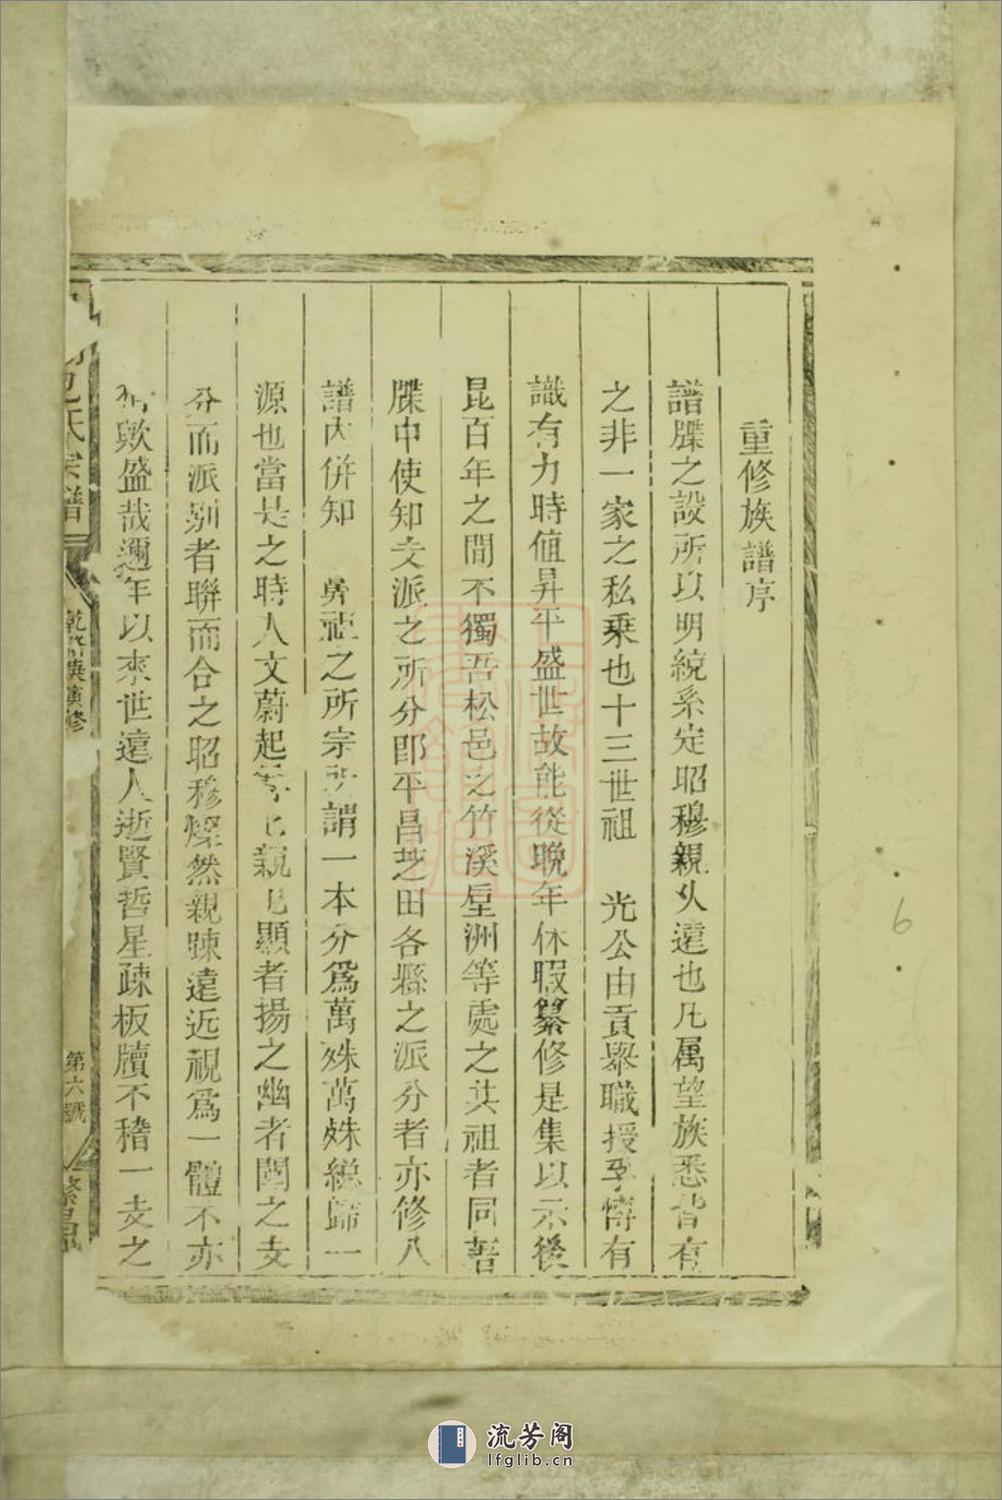 重修族譜序
譜牒之設所以明統系定昭穆親久遠也凡属望族悉皆有
之非一家之私乗也十三世祖 光公由貢舉職授孚博有
識有力時值昇平盛世故能從晚年休暇纂修是集以示後
昆百年之間不獨吾松邑之竹溪垕洲等處之共祖者同書
牒中使知支派之所分即平昌芝田各縣之派分者亦修入
譜內併知 鼻祖之所宗所謂一本分爲萬殊萬殊総歸一
源也當是之時人文蔚起 親 顯者揚之幽者闡之支
分而派别者聯而合之昭穆燦然親踈遠近視爲一體不亦
歟盛哉邇年以來世遠人逝賢哲星疎板牘不稽一支之
氏宗譜
修
第六號
繁昌
6
流芳阁
lfglib.cn